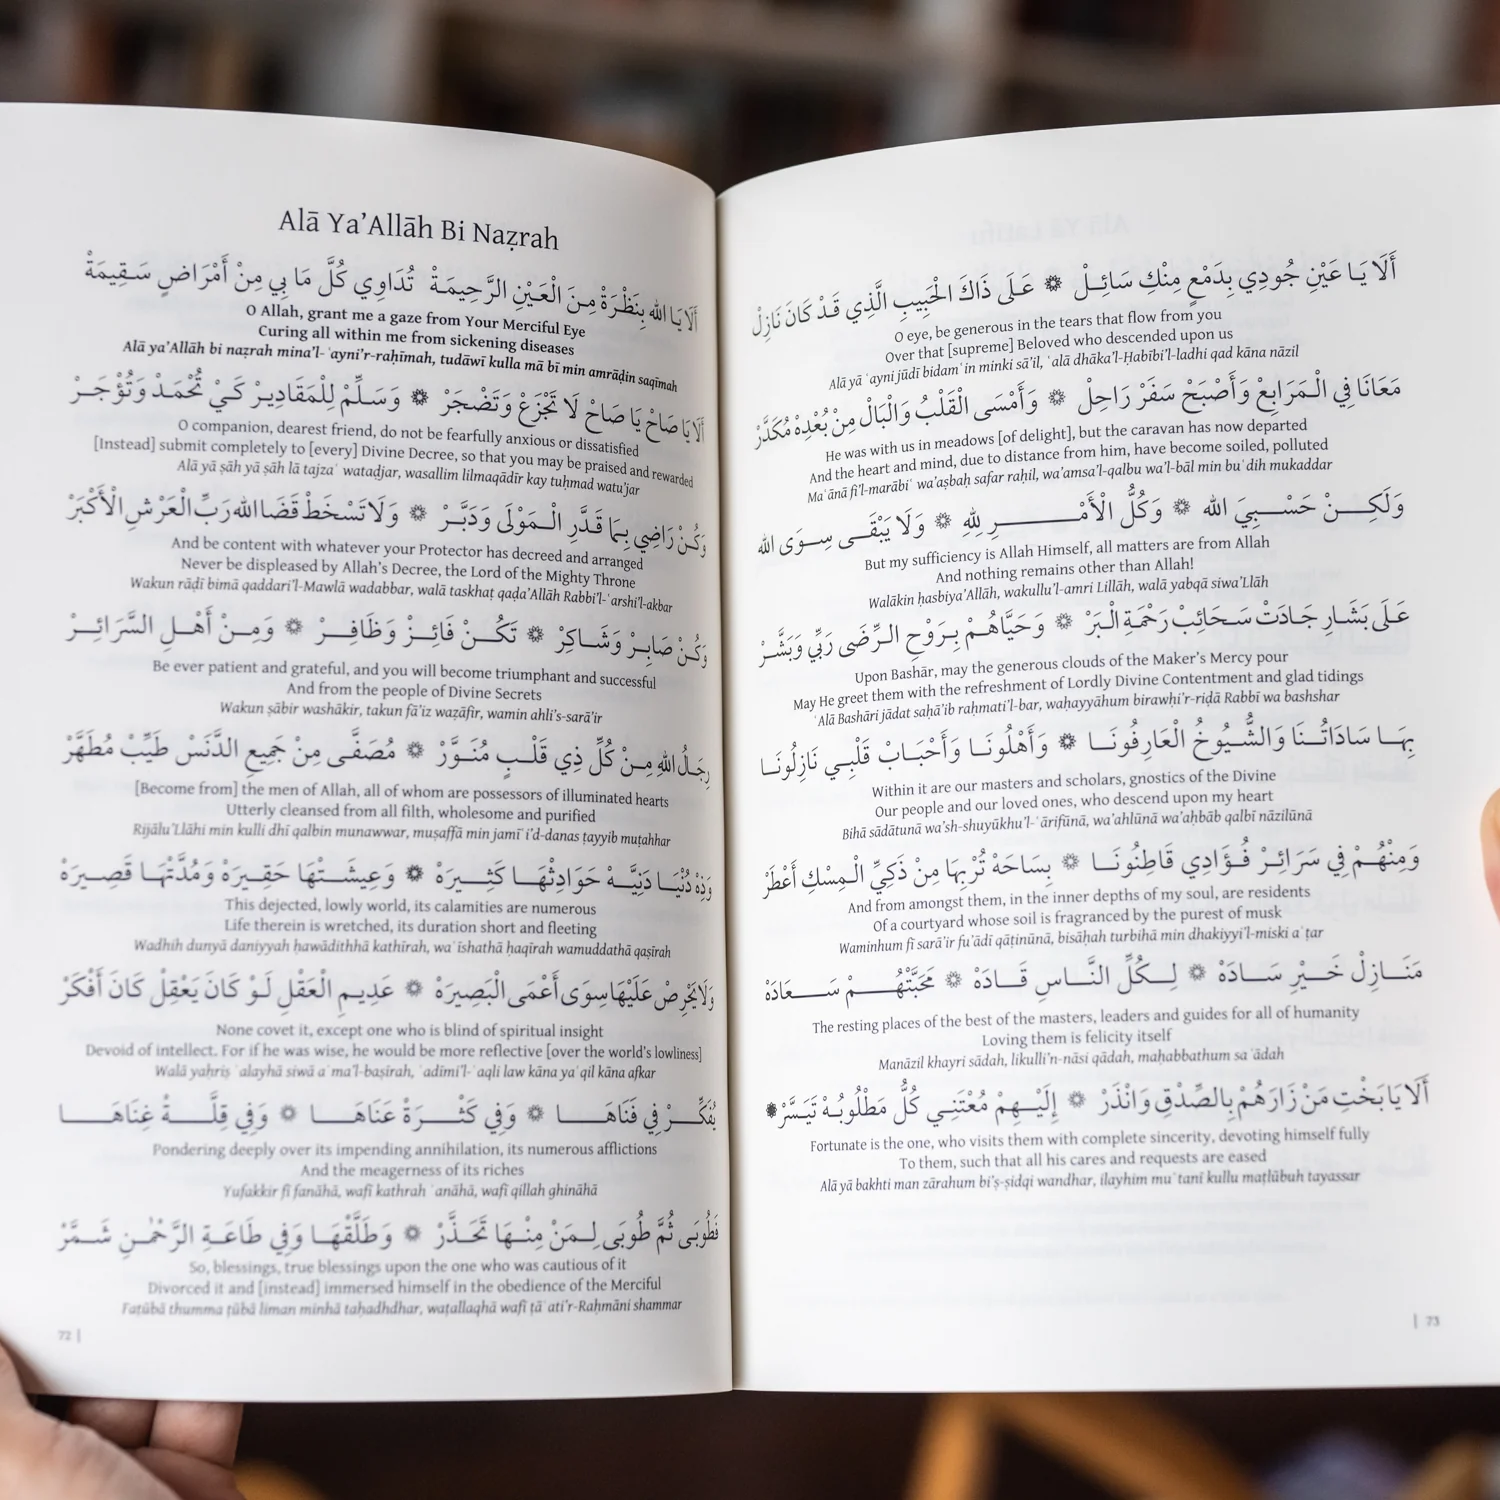 Alā Ya’Allāh Bi Naẓrah
أَلَا يَا الله بِنَظْرَةْ مِنَ الْعَيْنِ الرَّحِيمَةْ تُدَاوِي كُلَّ مَا بِي مِنْ أَمْرَاضٍ سَقِيمَةْ
O Allah, grant me a gaze from Your Merciful Eye
Curing all within me from sickening diseases
Alā ya’Allāh bi naẓrah mina’l-ʿayni’r-raḥīmah, tudāwī kulla mā bī min amrāḍin saqīmah
أَلَا يَا صَاحْ يَا صَاحْ لَا تَجْزَعْ وَتَضْجَرْ ۞ وَسَلِّمْ لِلْمَقَادِيرْ كَيْ تُحْمَدْ وَتُؤْجَرْ
O companion, dearest friend, do not be fearfully anxious or dissatisfied
[Instead] submit completely to [every] Divine Decree, so that you may be praised and rewarded
Alā yā ṣāḥ yā ṣāḥ lā tajzaʿ watadjar, wasallim lilmaqādīr kay tuḥmad watu’jar
وَكُنْ رَاضِي بِمَا قَدَّرِ الْمَوْلَى وَدَبَّرْ ۞ وَلَا تَسْخَطْ قَضَا الله رَبِّ الْعَرْشِ الْأَكْبَرْ
And be content with whatever your Protector has decreed and arranged
Never be displeased by Allah’s Decree, the Lord of the Mighty Throne
Wakun rāḍī bimā qaddari’l-Mawlā wadabbar, walā taskhaṭ qaḍa’Allāh Rabbi’l-ʿarshi’l-akbar
وَكُنْ صَابِرْ وَشَاكِرْ ۞ تَكُنْ فَائِزْ وَظَافِرْ ۞ وَمِنْ أَهْلِ السَّرَائِرْ
Be ever patient and grateful, and you will become triumphant and successful
And from the people of Divine Secrets
Wakun ṣābir washākir, takun fā’iz waẓāfir, wamin ahli’s-sarā’ir
رِجَالُ اللهِ مِنْ كُلِّ ذِي قَلْبٍ مُنَوَّرْ ۞ مُصَفَّى مِنْ جَمِيعِ الدَّنَسْ طَيِّبْ مُطَهَّرْ
[Become from] the men of Allah, all of whom are possessors of illuminated hearts
Utterly cleansed from all filth, wholesome and purified
Rijālu’Llāhi min kulli dhī qalbin munawwar, muṣaffā min jamīʿi’d-danas ṭayyib muṭahhar
وَذِهْ دُنْيَا دَنِيَّهْ حَوَادِثْهَا كَثِيرَهْ ۞ وَعِيشَتْهَا حَقِيرَهْ وَمُدَّتْهَا قَصِيرَهْ
This dejected, lowly world, its calamities are numerous
Life therein is wretched, its duration short and fleeting
Wadhih dunyā daniyyah ḥawādithhā kathīrah, waʿīshathā ḥaqīrah wamuddathā qaṣīrah
وَلَا يَحْرِصْ عَلَيْهَا سِوَى أَعْمَى الْبَصِيرَهْ ۞ عَدِيمِ الْعَقْلِ لَوْ كَانَ يَعْقِلْ كَانَ أَفْكَرْ
None covet it, except one who is blind of spiritual insight
Devoid of intellect. For if he was wise, he would be more reflective [over the world’s lowliness]
Walā yaḥriṣ ʿalayhā siwā aʿma’l-baṣīrah, ʿadīmi’l-ʿaqli law kāna yaʿqil kāna afkar
يُفَكِّرْ فِي فَنَاهَا ۞ وَفِي كَثْرَةْ عَنَاهَا ۞ وَفِي قِلَّةْ غِنَاهَا
Pondering deeply over its impending annihilation, its numerous afflictions
And the meagerness of its riches
Yufakkir fī fanāhā, wafī kathrah ʿanāhā, wafī qillah ghināhā
فَطُوبَى ثُمَّ طُوبَى لِمَنْ مِنْهَا تَحَذَّرْ ۞ وَطَلَّقْهَا وَفِي طَاعَةِ الرَّحْمٰنِ شَمَّرْ
So, blessings, true blessings upon the one who was cautious of it
Divorced it and [instead] immersed himself in the obedience of the Merciful
Faṭūbā thumma ṭūbā liman minhā taḥadhdhar, waṭallaqhā wafī ṭāʿati’r-Raḥmāni shammar
72 |
أَلَا يَا عَيْنِ جُودِي بِدَمْعٍ مِنْكِ سَائِلْ ۞ عَلَى ذَاكَ الْحَبِيبِ الَّذِي قَدْ كَانَ نَازِلْ
O eye, be generous in the tears that flow from you
Over that [supreme] Beloved who descended upon us
Alā yā ʿayni jūdī bidamʿin minki sā’il, ʿalā dhāka’l-Ḥabībi’l-ladhi qad kāna nāzil
مَعَانَا فِي الْمَرَابِعْ وَأَصْبَحْ سَفَرْ رَاحِلْ ۞ وَأَمْسَى الْقَلْبُ وَالْبَالْ مِنْ بُعْدِهْ مُكَدَّرْ
He was with us in meadows [of delight], but the caravan has now departed
And the heart and mind, due to distance from him, have become soiled, polluted
Maʿānā fi’l-marābiʿ wa’aṣbaḥ safar raḥil, wa’amsa’l-qalbu wa’l-bāl min buʿdih mukaddar
وَلَكِنْ حَسْبِيَ الله ۞ وَكُلُّ الْأَمْرِ لِلهِ ۞ وَلَا يَبْقَى سِوَى الله
But my sufficiency is Allah Himself, all matters are from Allah
And nothing remains other than Allah!
Walākin ḥasbiya’Allāh, wakullu’l-amri Lillāh, walā yabqā siwa’Llāh
عَلَى بَشَارِ جَادَتْ سَحَائِبْ رَحْمَةِ الْبَرْ ۞ وَحَيَّاهُمْ بِرَوْحِ الرِّضَى رَبِّي وَبَشَّرْ
Upon Bashār, may the generous clouds of the Maker’s Mercy pour
May He greet them with the refreshment of Lordly Divine Contentment and glad tidings
ʿAlā Bashāri jādat saḥā’ib raḥmati’l-bar, waḥayyāhum birawḥi’r-riḍā Rabbī wa bashshar
بِهَا سَادَاتُنَا وَالشُّيُوخُ الْعَارِفُونَا ۞ وَأَهْلُونَا وَأَحْبَابْ قَلْبِي نَازِلُونَا
Within it are our masters and scholars, gnostics of the Divine
Our people and our loved ones, who descend upon my heart
Bihā sādātunā wa’sh-shuyūkhu’l-ʿārifūnā, wa’ahlūnā wa’aḥbāb qalbī nāzilūnā
وَمِنْهُمْ فِي سَرَائِرْ فُؤَادِي قَاطِنُونَا ۞ بِسَاحَهْ تُرْبِهَا مِنْ ذَكِيِّ الْمِسْكِ أَعْطَرْ
And from amongst them, in the inner depths of my soul, are residents
Of a courtyard whose soil is fragranced by the purest of musk
Waminhum fī sarā’ir fu’ādī qāṭinūnā, bisāḥah turbihā min dhakiyyi’l-miski aʿṭar
مَنَازِلْ خَيْرِ سَادَهْ ۞ لِكُلِّ النَّاسِ قَادَهْ ۞ مَحَبَّتْهُمْ سَعَادَهْ
The resting places of the best of the masters, leaders and guides for all of humanity
Loving them is felicity itself
Manāzil khayri sādah, likulli’n-nāsi qādah, maḥabbathum saʿādah
أَلَا يَا بَخْتِ مَنْ زَارَهُمْ بِالصِّدْقِ وَانْذَرْ ۞ إِلَيْهِمْ مُعْتَنِي كُلُّ مَطْلُوبُهْ تَيَسَّرْ ۞
Fortunate is the one, who visits them with complete sincerity, devoting himself fully
To them, such that all his cares and requests are eased
Alā yā bakhti man zārahum bi’ṣ-ṣidqi wandhar, ilayhim muʿtanī kullu maṭlūbuh tayassar
| 73